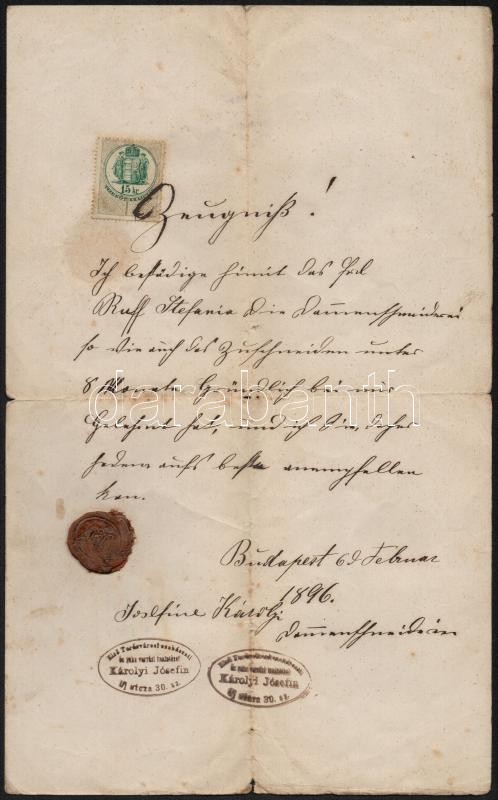 15 kr.
Zeugniß!
Ich bestädige himit das Frl
Raff Stefania die Dammenschneiderei
so wie auch das Zuschneiden unter
8 Monate Gründlich bei mir
Gelehrnt hat, und ich Sie, daher
jedem aufs beste anempfellen
kan.
Budapest 6d Februar
1896.
Josefine Károlyi
Dammenschneiderin
Első Terézvárosi szabászati
és ruha varrási tanintézet
Károlyi Józefin
Uj utcza 30. sz.
Első Terézvárosi szabászati
és ruha varrási tanintézet
Károlyi Józefin
Uj utcza 30. sz.
darabanth